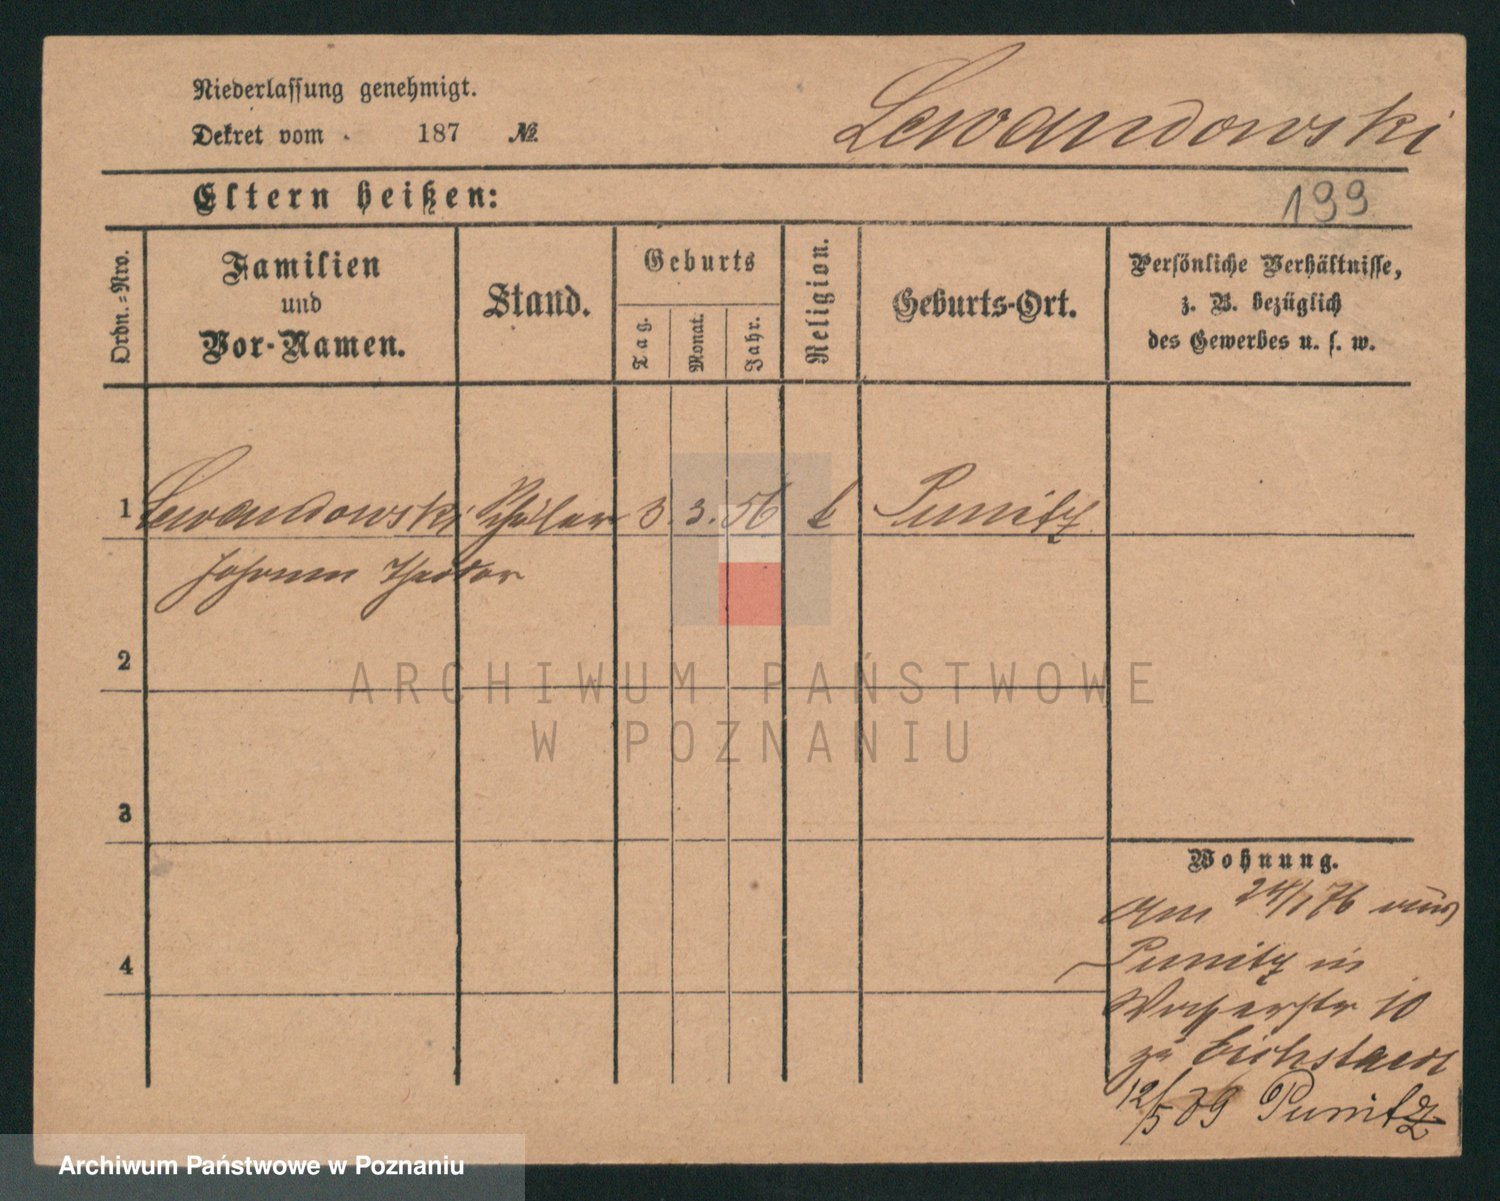 Niederlassung genehmigt.
Dekret vom 187 №
Lewandowski
Eltern heißen:
199
Ordn.=Nro.
Familien
und
Vor-Namen.
Stand.
Geburts
Tag.
Monat.
Jahr.
Religion.
Geburts-Ort.
Persönliche Verhältnisse,
z. B. bezüglich
des Gewerbes u. s. w.
1 Lewandowski Schüler 3. 3. 56 k Punitz
Johann Theodor
2
ARCHIWUM PAŃSTWOWE
W POZNANIU
3
4
Wohnung.
Am 24/1 76 aus
Punitz in
10
zu Eichstaedt
12/5 89 Punitz
Archiwum Państwowe w Poznaniu